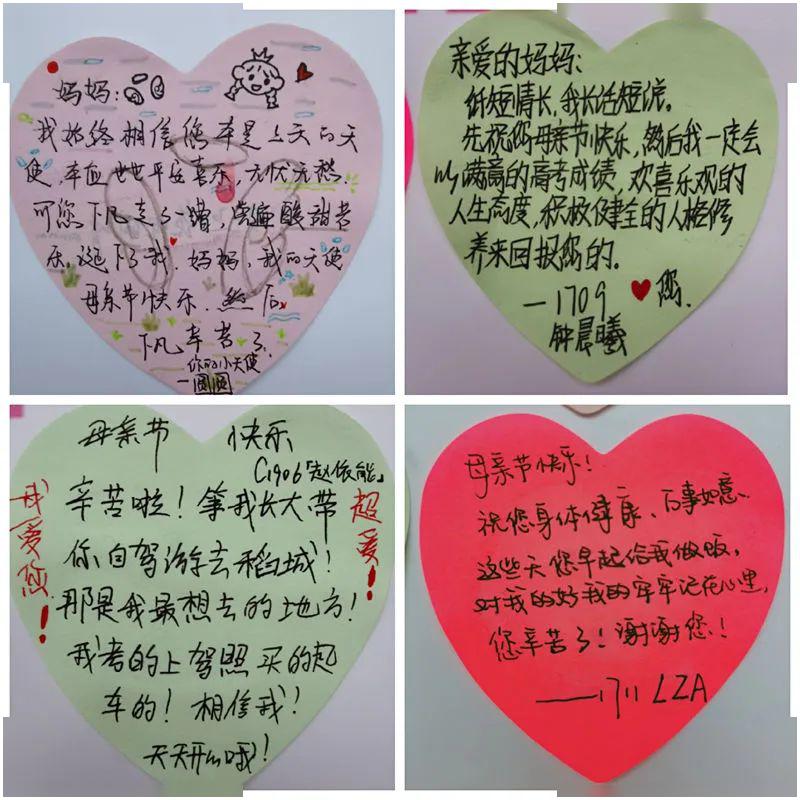 妈妈：
我始终相信您本是上天的天
使，本应世世平安喜乐，无忧无愁.
可您下凡走了一趟，尝遍酸甜苦
乐.诞下了我.妈妈，我的天使
母亲节快乐.然后,
下凡辛苦了.
你的小天使
—圆圆
亲爱的妈妈：
纸短情长，我长话短说。
先祝您母亲节快乐，然后我一定会
以满意的高考成绩，欢喜乐观的
人生态度，积极健全的人格修
养来回报您的。
—1709 ♥您.
钟晨曦
母亲节 快乐
C1906「赵依能」
辛苦啦！等我长大带
你自驾游去稻城！
那是我最想去的地方！
我考的上驾照买的起
车的！相信我！
天天开心哦！
我爱您！
超爱！
母亲节快乐！
祝您身体健康、百事如意.
这些天您早起给我做饭，
对我的好我的牢牢记在心里，
您辛苦了！谢谢您！
——1711 LZA